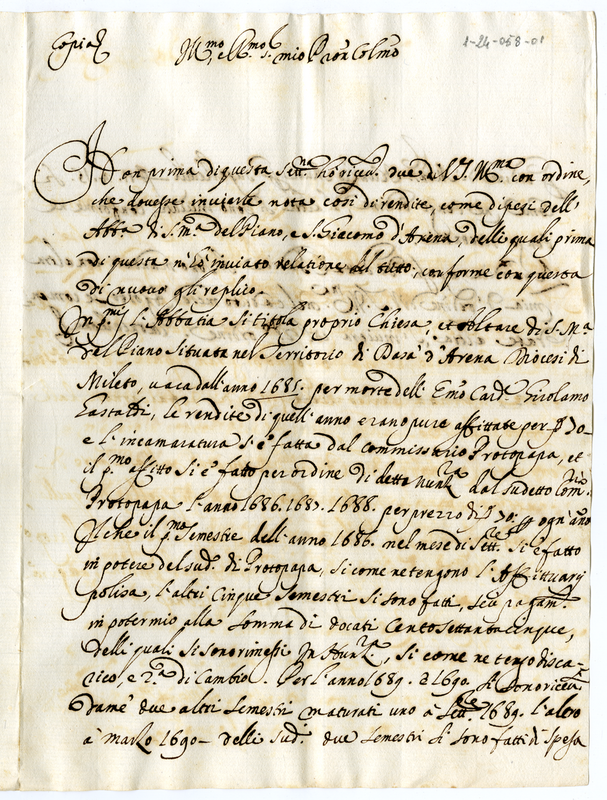 Copia
1-24-058-01
Ill.mo, e R.mo S.r mio P.ron Colmo
Con prima di questa sett.na hò ricev. due di V.S. Ill.ma con ordine,
che dovesse inviarle nota così di rendite, come di pesi dell'
Abba di S. M.a del Piano, e S. Giacomo d'Arena, delli quali prima
di questa n'hò inviato relatione del tutto, conforme con questa
di nuovo gli replico.
In p.mis l'Abbatia si titola proprio Chiesa, et Altare di S. M.a
del Piano situata nel territorio di Dasà d'Arena Diocesi di
Mileto, vaca dall'anno 1685. per morte dell' Em.o Card. Girolamo
Gastaldi, le rendite di quell'anno erano pure affittate per 70–
e l'incamaratura s'è fatta dal commissario Protopapa, et
il p.mo affitto si è fatto per ordine di detta Nunz.ra dal sudetto Com.rio
Protopapa l'anno 1686. 1687. 1688. per prezzo di 70. ogn'anno
Il che il p.mo semestre dell'anno 1686. nel mese di Sett.re si è fatto
in potere del sud. di Protopapa, si come ne tengono l'Affittuarij
polisa, l'altri cinque semestri si sono fatti, seu pagam.
in poter mio alla somma di docati Cento settanta cinque,
delli quali si sono rimessi in Nunz.ra, si come ne tengo disca-
rico, e di Cambio. Per l'anno 1689. e 1690. si sono ricevu.
da me due altri semestri maturati uno à Sett.re 1689. l'altro
à marzo 1690– delli sud. due semestri si sono fatti di spesa